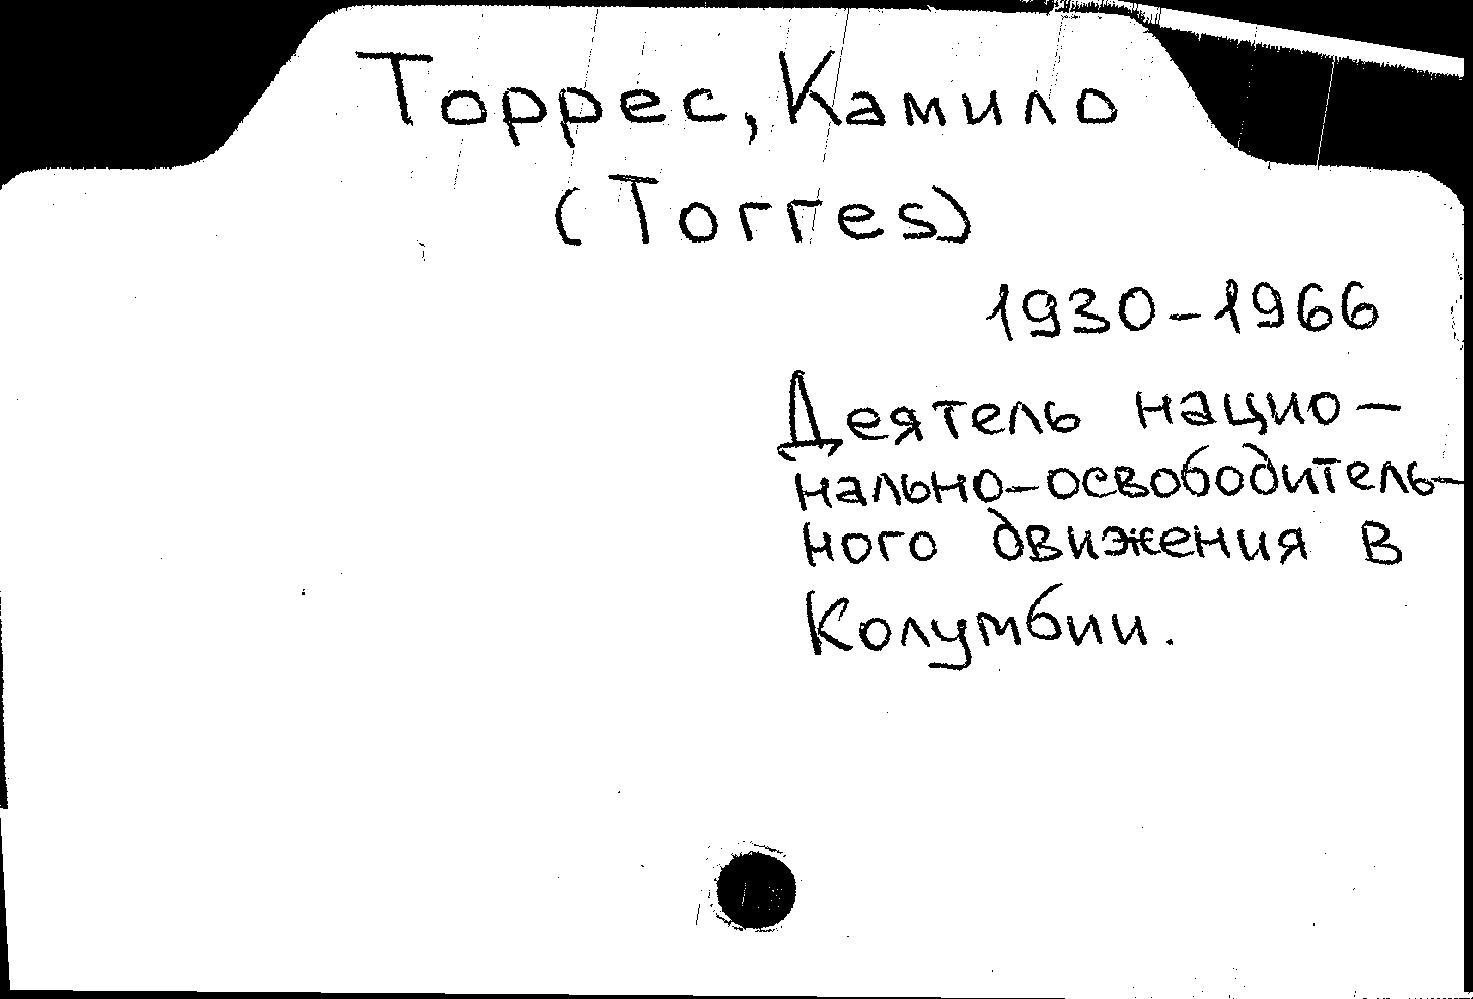 Торрес, Камило
(Torres)
1930-1966
Деятель нацио-
нально-освободитель-
ного движения в
Колумбии.